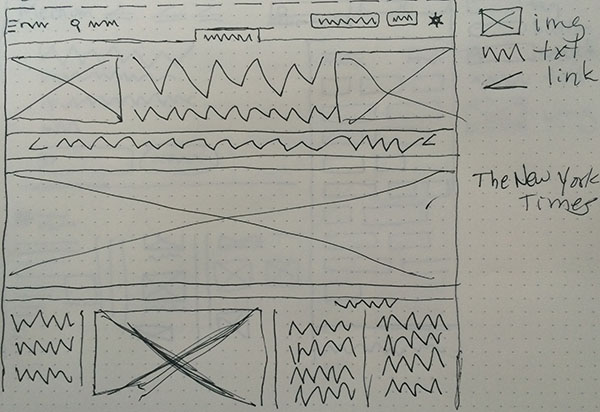 img
txt
link
The New York
Times